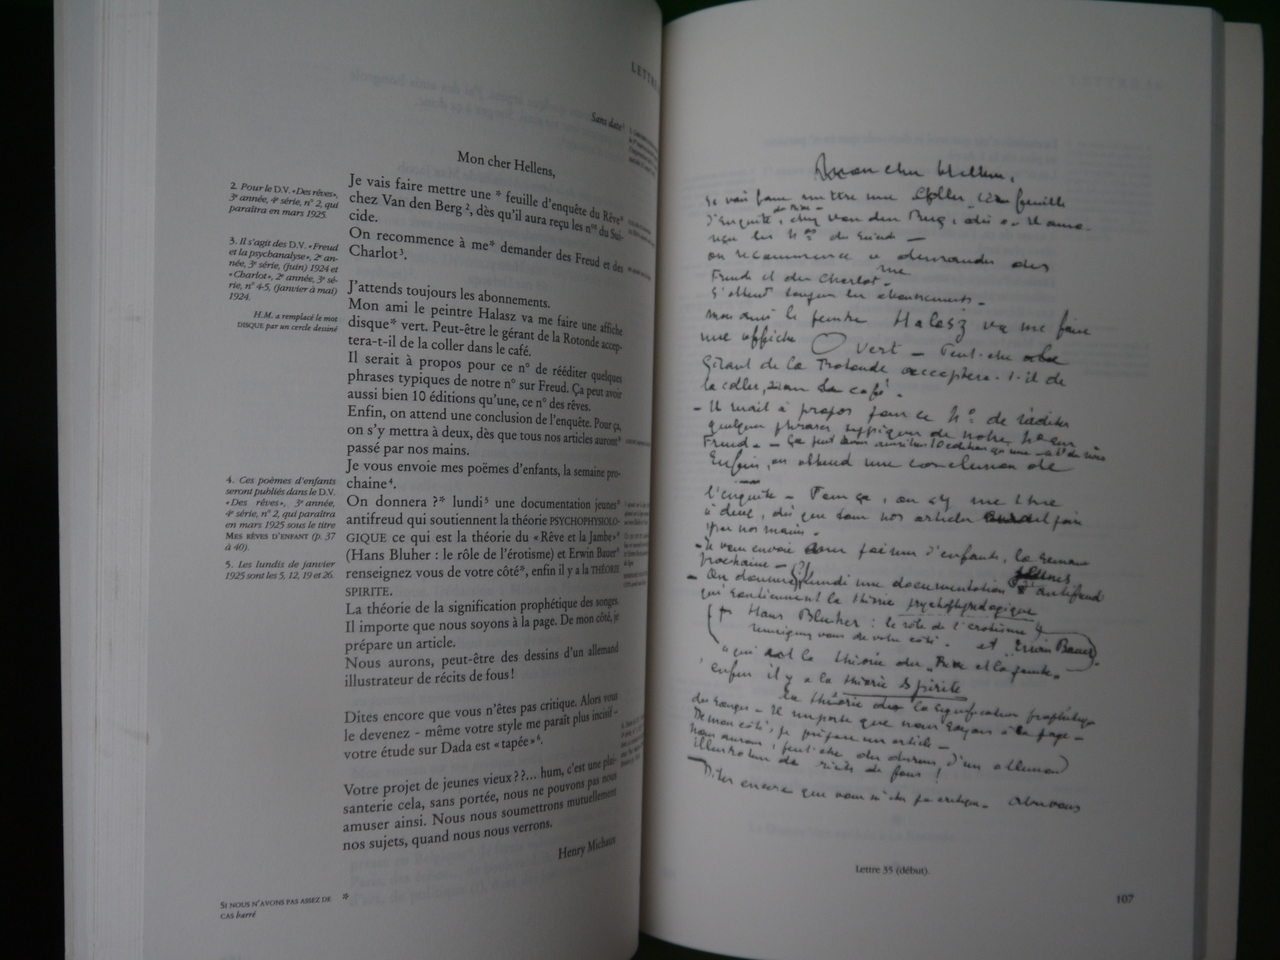 LETTRE
Sans date¹
Mon cher Hellens,
Je vais faire mettre une * feuille d'enquête du Rêve*
chez Van den Berg ², dès qu'il aura reçu les nᵒˢ du Sui-
cide.
On recommence à me* demander des Freud et des
Charlot³.
J'attends toujours les abonnements.
Mon ami le peintre Halasz va me faire une affiche
disque* vert. Peut-être le gérant de la Rotonde accep-
tera-t-il de la coller dans le café.
Il serait à propos pour ce n° de rééditer quelques
phrases typiques de notre n° sur Freud. Ça peut avoir
aussi bien 10 éditions qu'une, ce n° des rêves.
Enfin, on attend une conclusion de l'enquête. Pour ça,
on s'y mettra à deux, dès que tous nos articles auront*
passé par nos mains.
Je vous envoie mes poëmes d'enfants, la semaine pro-
chaine⁴.
On donnera ?* lundi⁵ une documentation jeunes*
antifreud qui soutiennent la théorie PSYCHOPHYSIOLO-
GIQUE ce qui est la théorie du «Rêve et la Jambe»*
(Hans Bluher : le rôle de l'érotisme) et Erwin Bauer*
renseignez vous de votre côté*, enfin il y a la THÉORIE
SPIRITE.
La théorie de la signification prophétique des songes.
Il importe que nous soyons à la page. De mon côté, je
prépare un article.
Nous aurons, peut-être des dessins d'un allemand
illustrateur de récits de fous!
Dites encore que vous n'êtes pas critique. Alors vous
le devenez - même votre style me paraît plus incisif -
votre étude sur Dada est « tapée»⁶.
Votre projet de jeunes vieux ??... hum, c'est une plai-
santerie cela, sans portée, nous ne pouvons pas nous
amuser ainsi. Nous nous soumettrons mutuellement
nos sujets, quand nous nous verrons.
Henry Michaux
2. Pour le D.V. «Des rêves»,
3ᵉ année, 4ᵉ série, n° 2, qui
paraîtra en mars 1925.
3. Il s'agit des D.V. «Freud
et la psychanalyse», 2ᵉ an-
née, 3ᵉ série, (juin) 1924 et
«Charlot», 2ᵉ année, 3ᵉ sé-
rie, n° 4-5, (janvier à mai)
1924.
H.M. a remplacé le mot
DISQUE par un cercle dessiné
4. Ces poèmes d'enfants
seront publiés dans le D.V.
«Des rêves», 3ᵉ année,
4ᵉ série, n° 2, qui paraîtra
en mars 1925 sous le titre
MES RÊVES D'ENFANT (p. 37
à 40).
5. Les lundis de janvier
1925 sont les 5, 12, 19 et 26.
SI NOUS N'AVONS PAS ASSEZ DE *
CAS barré
Mon cher Hellens,
Je vais faire mettre une feuille
d'enquête du Rêve chez van den Berg, dès qu'il aura
reçu les Nᵒˢ du Suicide —
on recommence à me demander des
Freud et des Charlot.
J'attends toujours les abonnements.
mon ami le peintre Halasz va me faire
une affiche O vert — Peut-être le
Gérant de la Rotonde acceptera-t-il de
la coller dans le café.
— Il serait à propos pour ce N° de rééditer
quelques phrases typiques de notre N° sur
Freud. — Ça peut avoir aussi bien 10 éditions qu'une — ce n° des rêves
Enfin, on attend une conclusion de
l'enquête — Pour ça, on s'y mettra
à deux, dès que tous nos articles
par nos mains.
— Je vous envoie mes poëmes d'enfants, la semaine
prochaine —
— On donnera (?) lundi une documentation jeunes antifreud
qui soutiennent la théorie
( Hans Bluher : le rôle de l'érotisme
renseignez vous de votre côté. et Erwin Bauer)
ce qui est la théorie du «Rêve et la jambe»
enfin il y a la théorie Spirite
la théorie de la signification prophétique
des songes — Il importe que nous soyons à la page —
De mon côté, je prépare un article —
nous aurons, peut-être, des dessins d'un allemand
illustrateur de récits de fous !
— Dites encore que vous n'êtes pas critique. Alors vous
Lettre 35 (début).
107